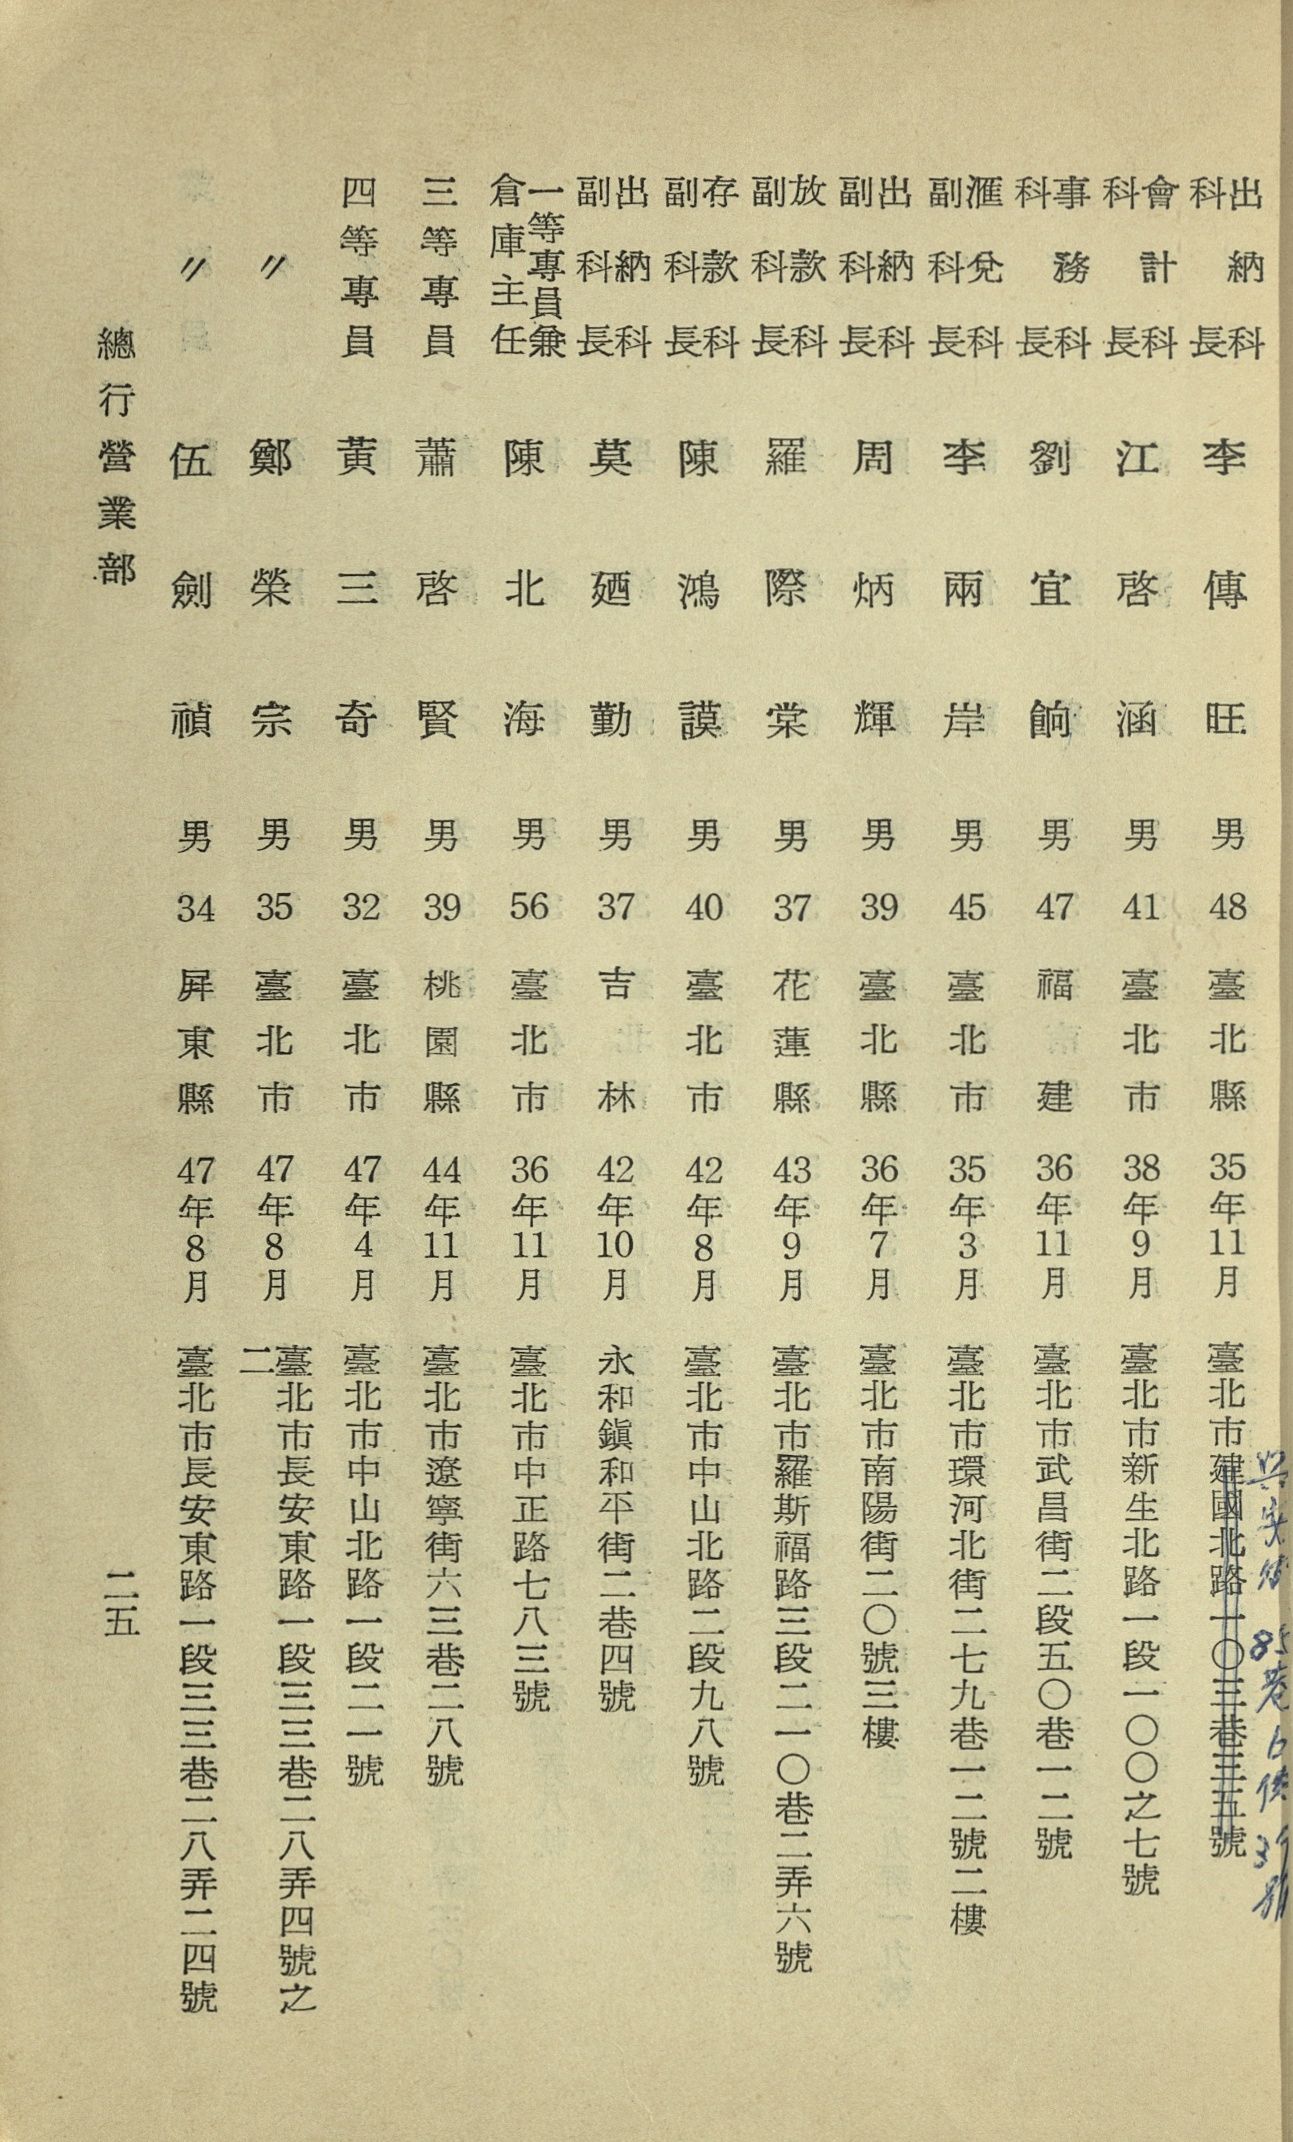 出納科科長 李傳旺 男 48 臺北縣 35年11月 臺北市建國北路一〇三巷三五號
85巷6
會計科科長 江啓涵 男 41 臺北市 38年9月 臺北市新生北路一段一〇〇之七號
事務科科長 劉宜餉 男 47 福建 36年11月 臺北市武昌街二段五〇巷一二號
滙兌科副科長 李兩岸 男 45 臺北市 35年3月 臺北市環河北街二七九巷一二號二樓
出納科副科長 周炳輝 男 39 臺北縣 36年7月 臺北市南陽街二〇號三樓
放款科副科長 羅際棠 男 37 花蓮縣 43年9月 臺北市羅斯福路三段二一〇巷二弄六號
存款科副科長 陳鴻謨 男 40 臺北市 42年8月 臺北市中山北路二段九八號
出納科副科長 莫廼勤 男 37 吉林 42年10月 永和鎭和平街二巷四號
一等專員兼倉庫主任 陳北海 男 56 臺北市 36年11月 臺北市中正路七八三號
三等專員 蕭啓賢 男 39 桃園縣 44年11月 臺北市遼寧街六三巷二八號
四等專員 黃三奇 男 32 臺北市 47年4月 臺北市中山北路一段二一號
〃 鄭榮宗 男 35 臺北市 47年8月 臺北市長安東路一段三三巷二八弄四號之二
〃 伍劍禎 男 34 屛東縣 47年8月 臺北市長安東路一段三三巷二八弄二四號
總行營業部
二五